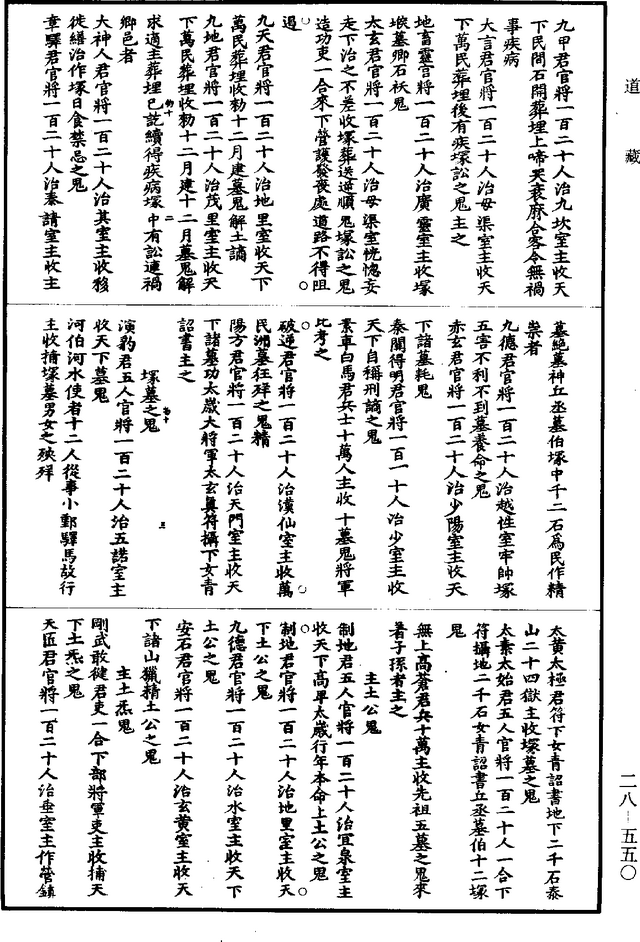 道藏
九甲君官將一百二十人治九坎室主收天
下民間石開葬埋上啼哭衰麻合客令無禍
事疾病
大言君官將一百二十人治毋渠室主收天
下萬民葬埋後有疾塚訟之鬼主之
地畜靈官將一百二十人治廣靈室主收塚
墓卿石袄鬼
太玄君官將一百二十人治毋渠室恍惚妄
走下治之不差收塚葬送逆順鬼塚訟之鬼
造功吏一合來下營護發喪處道路不得阻
遏
九天君官將一百二十人治地里室收天下
萬民葬埋收勑十二月建墓鬼解土謫
九地君官將一百二十人治茂里室主收天
下萬民葬埋收勑十二月建十二月墓鬼解
求適主葬埋已訖續得疾病塚中有訟連禍
鄉邑者
大神人君官將一百二十人治其室主收移
徙繕治作塚日食禁忌之鬼
章驛君官將一百二十人治泰請室主收主
墓絕墓神丘丞墓伯塚中千二石為民作精
祟者
九德君官將一百二十人治越性室牢帥塚
五害不利不到墓養命之鬼
赤玄君官將一百二十人治少陽室主收天
下諸墓耗鬼
秦闌得明君官將一百一十人治少室主收
天下自稱刑謫之鬼
素車白馬君兵士十萬人主收十墓鬼將軍
比考之
破逆君官將一百二十人治漢仙室主收萬
民溯墓狂殃之鬼精
陽方君官將一百二十人治天門室主收天
下諸墓功太歲大將軍太玄真符攝下女青
詔書主之
塚墓之鬼
演豹君五人官將一百二十人治五諾室主
收天下墓鬼
河伯河水使者十二人從事小鄞驛馬設行
主收捕塚墓男女之殃殍
太黄太極君符下女青詔書地下二千石泰
山二十四獄主收塚墓之鬼
太素太始君五人官將一百二十人一合下
符攝地二千石女青詔書丘丞墓伯十二塚
鬼
無上高蒼君兵十萬主收先祖五墓之鬼來
著子孫者主之
主土公鬼
制地君五人官將一百二十人治宜泉室主
收天下高卑太歲行年本命上土公之鬼
制地君官將一百二十人治地里室主收天
下土公之鬼
九德君官將一百二十人治水室主收天下
土公之鬼
安石君官將一百二十人治玄黄室主收天
下諸山獵精土公之鬼
主土炁鬼
剛武敢健君吏一合下部將軍吏主收捕天
下土炁之鬼
天匠君官將一百二十人治垂室主作營鎮
二八-五五〇